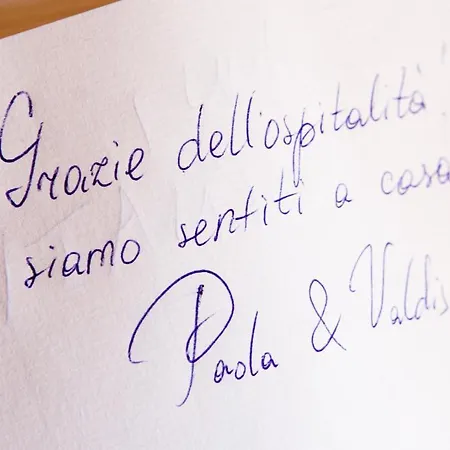 Grazie dell'ospitalità!
siamo sentiti a casa
Paola & Valdis